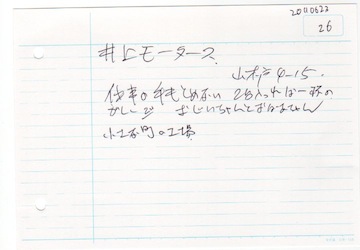 20110623
26
井上モータース
山木戸4-15.
仕事の手をとめない 2台入れば一杯の
ガレージ おじいちゃんとおばあちゃん
小さな町の工場